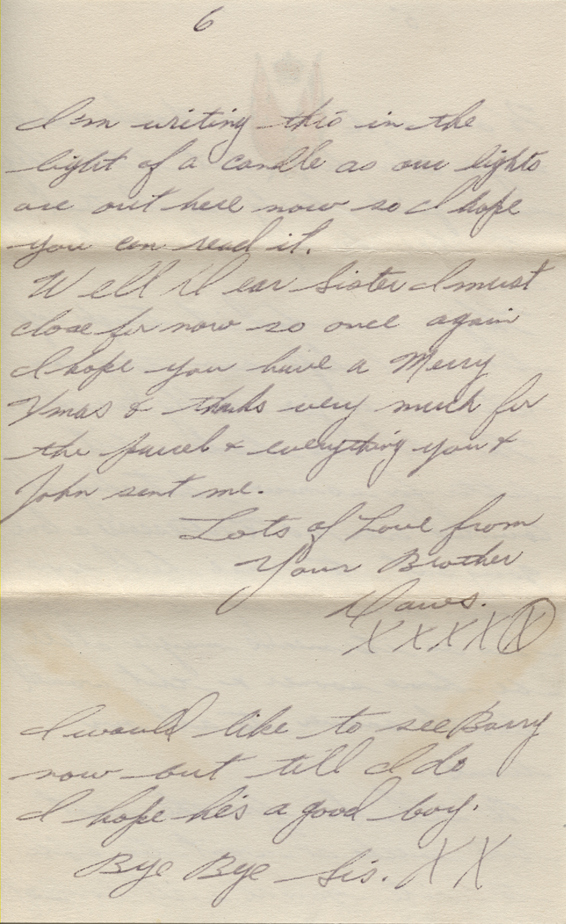 6
I'm writing this in the
light of a candle as our lights
are out here now so I hope
you can read it.
Well Dear Sister I must
close for now so once again
I hope you have a Merry
Xmas & thanks very much for
the parcel & everything you &
John sent me.
Lots of Love from
Your Brother
Daws.
XXXXX
I would like to see Barry
now but till I do
I hope he's a good boy.
Bye Bye Sis. XX